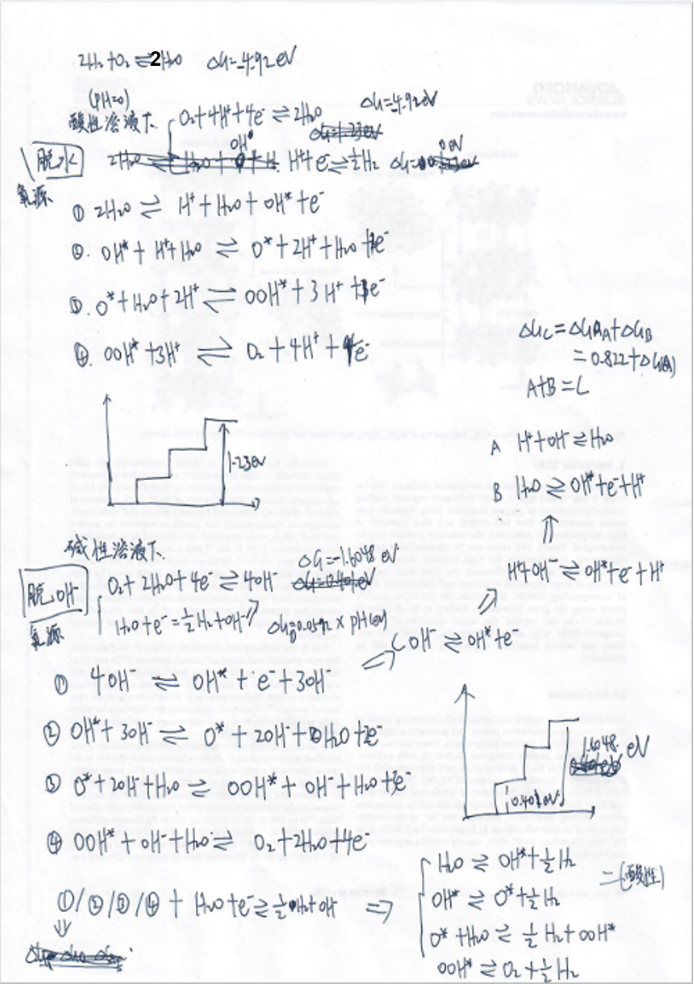 2H₂+O₂ ⇌ 2H₂O ΔG=-4.92eV
(PH=0)
酸性溶液下. O₂+4H⁺+4e⁻ ⇌ 2H₂O ΔG=-4.92eV
脱水 H⁺+e⁻ ⇌ ½H₂ ΔG= 0eV
氧源
① 2H₂O ⇌ H⁺+H₂O+OH*+e⁻
②. OH*+H⁺+H₂O ⇌ O*+2H⁺+H₂O+e⁻
③. O*+H₂O+2H⁺ ⇌ OOH*+3H⁺+e⁻
④. OOH*+3H⁺ ⇌ O₂+4H⁺+e⁻
ΔG_C=ΔG_A+ΔG_B
=0.822+ΔG(B)
A+B=C
1.23eV
A H⁺+OH⁻ ⇌ H₂O
B H₂O ⇌ OH*+e⁻+H⁺
⇑
H⁺+OH⁻ ⇌ OH*+e⁻+H⁺
碱性溶液下.
脱OH⁻ O₂+2H₂O+4e⁻ ⇌ 4OH⁻ ΔG=-1.6048 eV
氧源 H₂O+e⁻=½H₂+OH⁻ ΔG=0.0592×pH(eV)
C OH⁻ ⇌ OH*+e⁻
① 4OH⁻ ⇌ OH*+e⁻+3OH⁻
② OH*+3OH⁻ ⇌ O*+2OH⁻+H₂O+e⁻
③ O*+2OH⁻+H₂O ⇌ OOH*+OH⁻+H₂O+e⁻
④ OOH*+OH⁻+H₂O ⇌ O₂+2H₂O+e⁻
1.6048 eV
0.401eV
①/②/③/④ + H₂O+e⁻ ⇌ ½H₂+OH⁻ ⇒
H₂O ⇌ OH*+½H₂
OH* ⇌ O*+½H₂ =(酸性)
O*+H₂O ⇌ ½H₂+OOH*
OOH* ⇌ O₂+½H₂